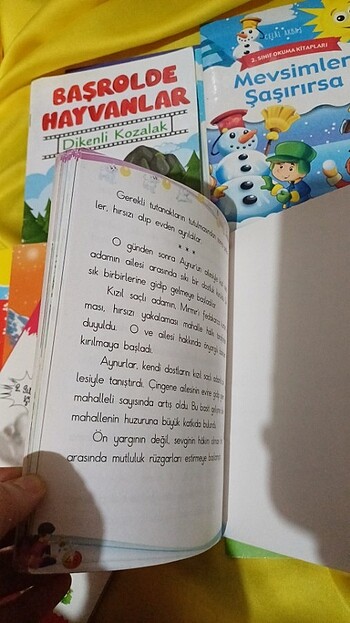 BAŞROLDE
HAYVANLAR
Dikenli Kozalak
2. SINIF OKUMA KİTAPLARI
Mevsimler
Şaşırırsa
Gerekli tutanakların tutulmasından
ler, hırsızı alıp evden ayrıldılar.
***
O günden sonra Aynur'un ailesiyle
adamın ailesi arasında sıkı bir dostluk
sık birbirlerine gidip gelmeye başladılar.
Kızıl saçlı adamın, Mırmır'ı
ması, hırsızı yakalaması mahalle halkı
duyuldu. O ve ailesi hakkında önyargılar
kırılmaya başladı.
Aynurlar, kendi dostlarını kızıl saçlı adamın
lesiyle tanıştırdı. Çingene ailesinin evine gidip
mahalleli sayısında artış oldu. Bu basit
mahallenin huzuruna büyük katkıda bulundu.
Ön yargının değil, sevginin hâkim
arasında mutluluk rüzgarları estirmeye başlandı.